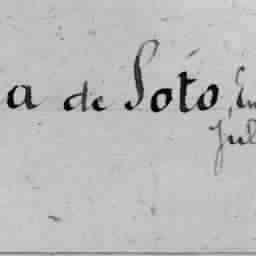 a de Soto, Em
Jul